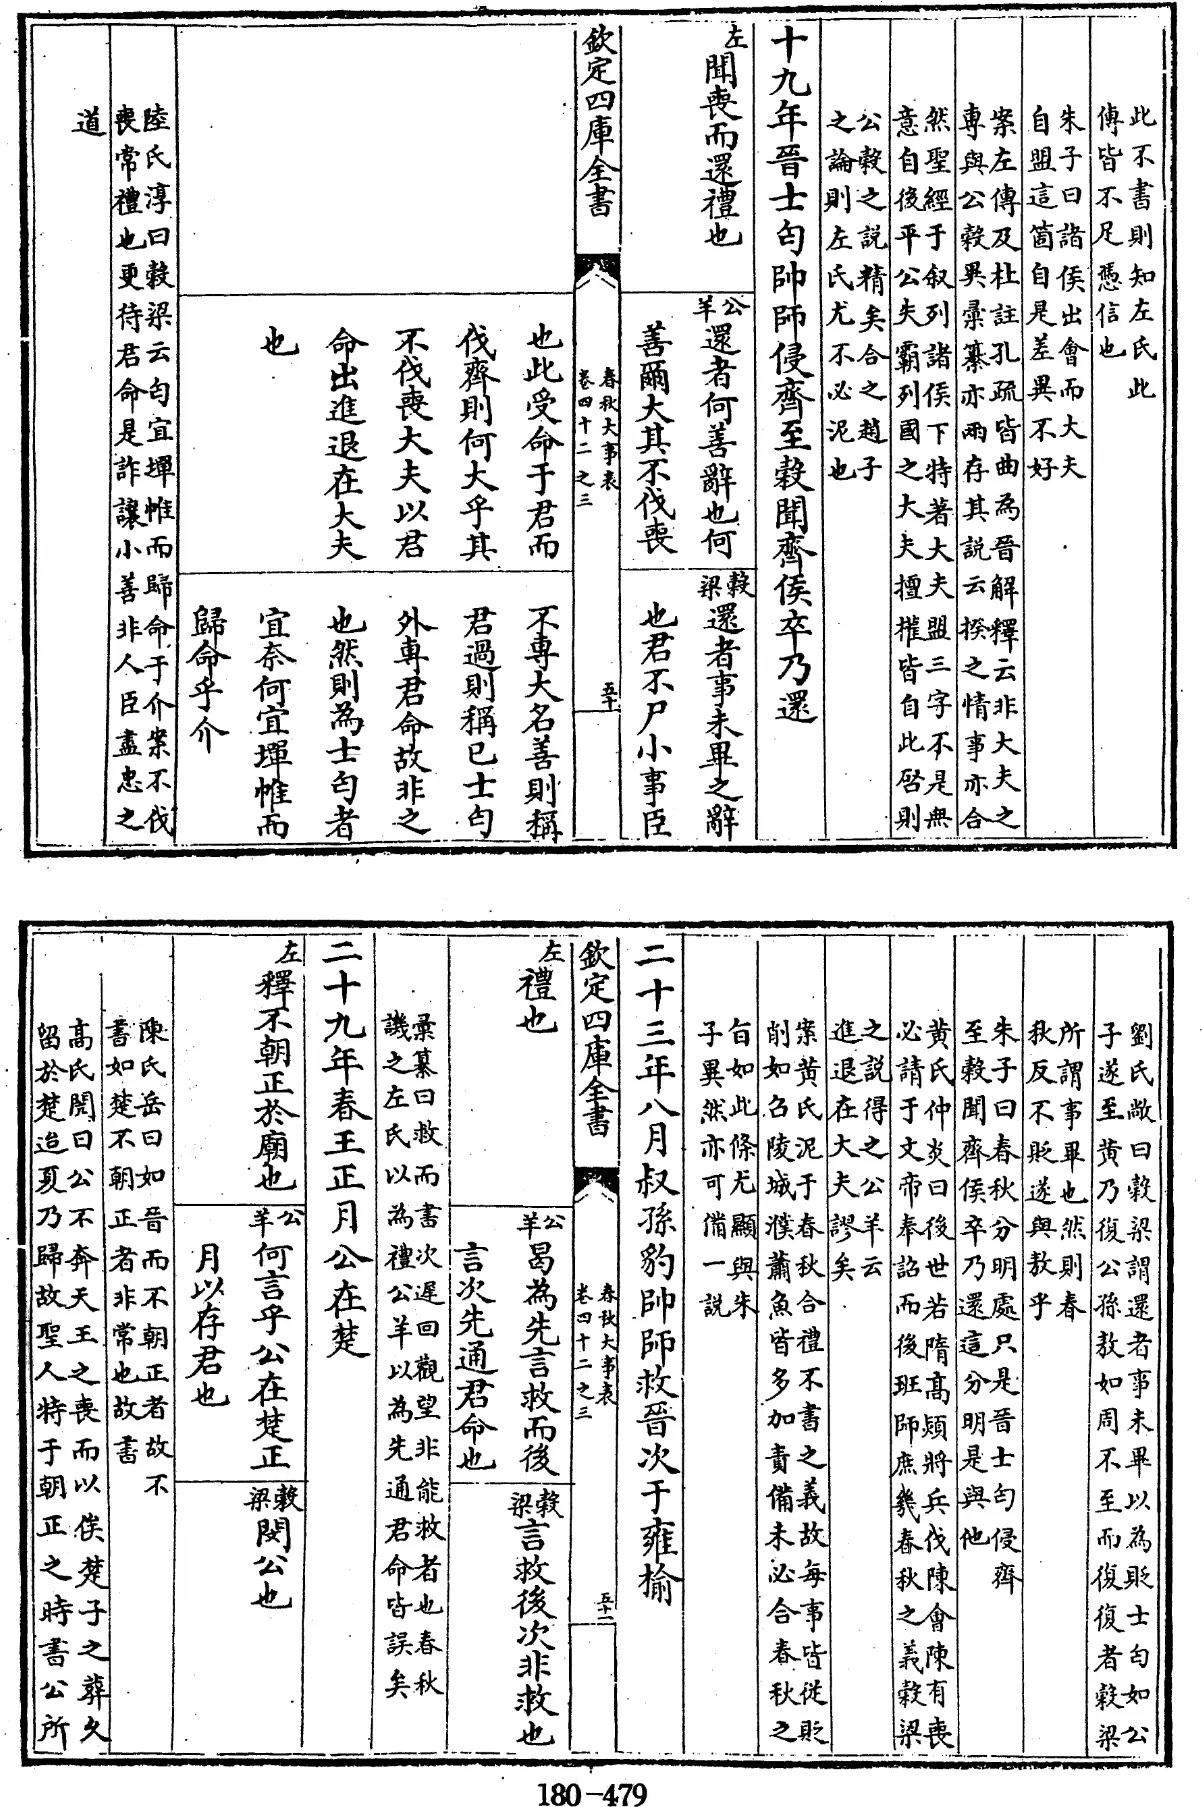 此不書則知左氏此
傳皆不足憑信也
朱子曰諸侯出會而大夫
自盟這箇自是差異不好
案左傳及杜註孔疏皆曲為晉解釋云非大夫之
專與公穀異彙纂亦兩存其説云揆之情事亦合
然聖經于叙列諸侯下特著大夫盟三字不是無
意自後平公失霸列國之大夫擅權皆自此啓則
公穀之説精矣合之趙子
之論則左氏尤不必泥也
十九年晉士匄帥師侵齊至穀聞齊侯卒乃還
左
聞喪而還禮也
公羊
還者何善辭也何
善爾大其不伐喪
穀梁
還者事未畢之辭
也君不尸小事臣
欽定四庫全書
春秋大事表
卷四十二之三
五十
也此受命于君而
伐齊則何大乎其
不伐喪大夫以君
命出進退在大夫
也
不專大名善則稱
君過則稱已士匄
外專君命故非之
也然則為士匄者
宜奈何宜墠帷而
歸命乎介
陸氏淳曰穀梁云匄宜墠帷而歸命于介案不伐
喪常禮也更待君命是詐讓小善非人臣盡忠之
道
劉氏敞曰穀梁謂還者事未畢以為貶士匄如公
子遂至黄乃復公孫敖如周不至而復復者穀梁
所謂事畢也然則春
秋反不貶遂與敖乎
朱子曰春秋分明處只是晉士匄侵齊
至穀聞齊侯卒乃還這分明是與他
黄氏仲炎曰後世若隋高熲將兵伐陳會陳有喪
必請于文帝奉詔而後班師庶幾春秋之義穀梁
之説得之公羊云
進退在大夫謬矣
案黄氏泥于春秋合禮不書之義故每事皆從貶
削如召陵城濮蕭魚皆多加責備未必合春秋之
旨如此條尤顯與朱
子異然亦可備一説
二十三年八月叔孫豹帥師救晉次于雍榆
欽定四庫全書
春秋大事表
卷四十二之三
五十一
左
禮也
公羊
曷為先言救而後
言次先通君命也
穀梁
言救後次非救也
彙纂曰救而書次遲回觀望非能救者也春秋
譏之左氏以為禮公羊以為先通君命皆誤矣
二十九年春王正月公在楚
左
釋不朝正於廟也
公羊
何言乎公在楚正
月以存君也
穀梁
閔公也
陳氏岳曰如晉而不朝正者故不
書如楚不朝正者非常也故書
高氏閌曰公不奔天王之喪而以俟楚子之葬久
留於楚迨夏乃歸故聖人特于朝正之時書公所
180-479